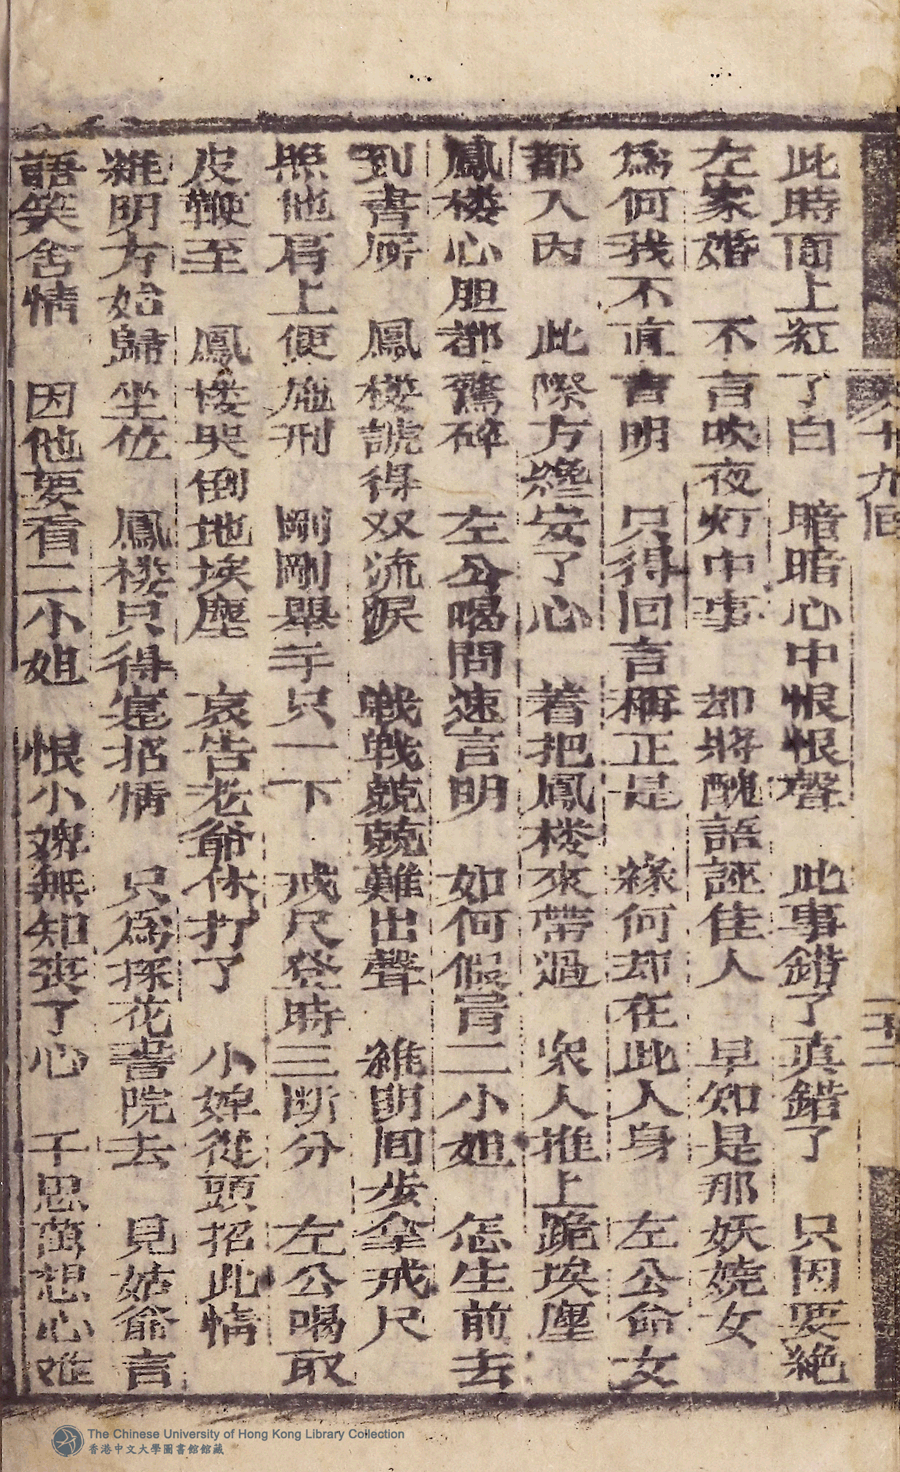 此時面上紅了白　暗暗心中恨恨聲　此事錯了真錯了　只因要絶
左家婚　不言吹夜灯中事　却將醜語誣佳人　早知是那妖娆女
為何我不直言明　只得回言稱正是　緣何却在此人身　左公命女
都入內　此際方纔安了心　着把鳳楼來帶過　衆人推上跪埃塵
鳳楼心胆都驚碎　左公喝問速言明　如何假冐二小姐　怎生前去
到書房　鳳楼諕得双流淚　戰戰兢兢難出聲　維明回步拿戒尺
照他肩上便施刑　剛剛舉手只一下　戒尺登時三断分　左公喝取
皮鞭至　鳳楼哭倒地埃塵　哀告老爺休打了　小婢從頭招此情
維明方始歸坐位　鳳楼只得寔招情　只為採花書院去　見姑爺言
語笑含情　因他要看二小姐　恨小婢無知丧了心　千思萬想心难
十九囘
五二
The Chinese University of Hong Kong Library Collection
香港中文大學圖書館館藏